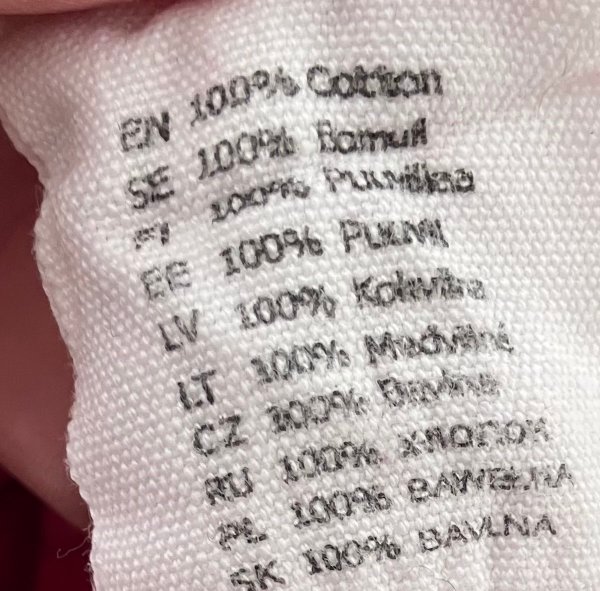 EN 100% Cotton
SE 100% Bomull
FI 100% Puuvillaa
EE 100% Puuvill
LV 100% Kokvilna
LT 100% Medvilnė
CZ 100% Bavlna
RU 100% ХЛОПОК
PL 100% BAWEŁNA
SK 100% BAVLNA